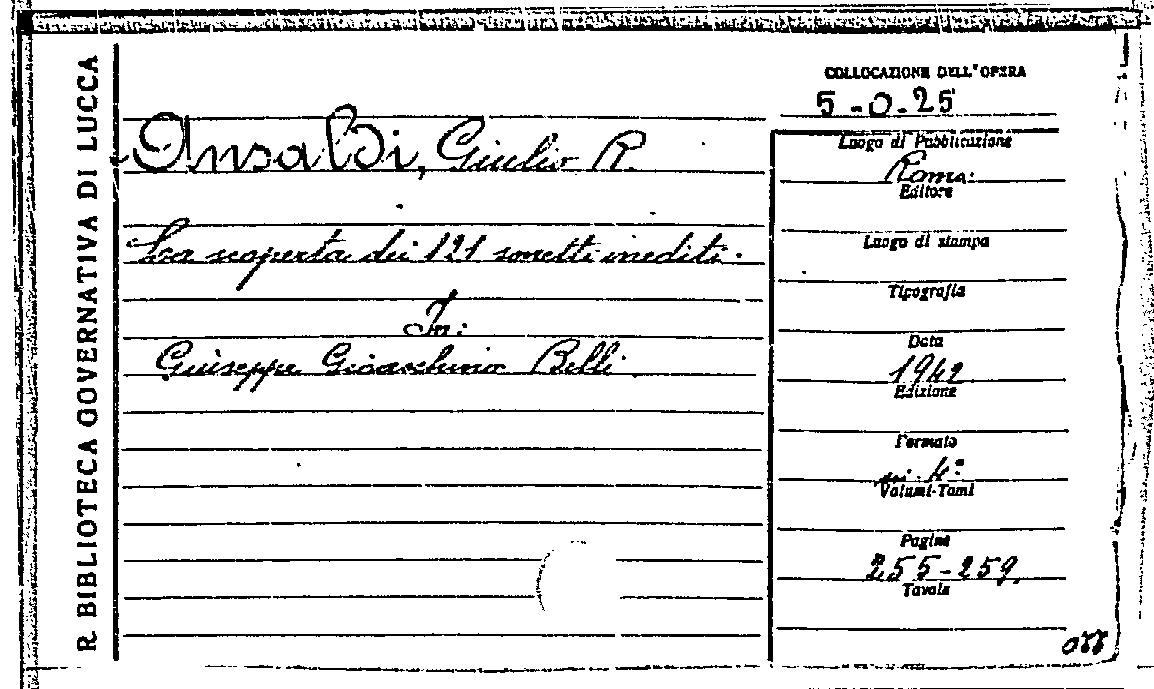 R BIBLIOTECA GOVERNATIVA DI LUCCA
COLLOCAZIONE DELL'OPERA
5-0-25
Ansaldi, Giulio R.
La scoperta dei 121 sonetti inediti.
In:
Giuseppe Gioacchino Belli
Luogo di Pubblicazione
Roma
Editore
Luogo di stampa
Tipografia
Data
1942
Edizione
Formato
in 4º
Volumi-Tomi
Pagine
255-259.
Tavole